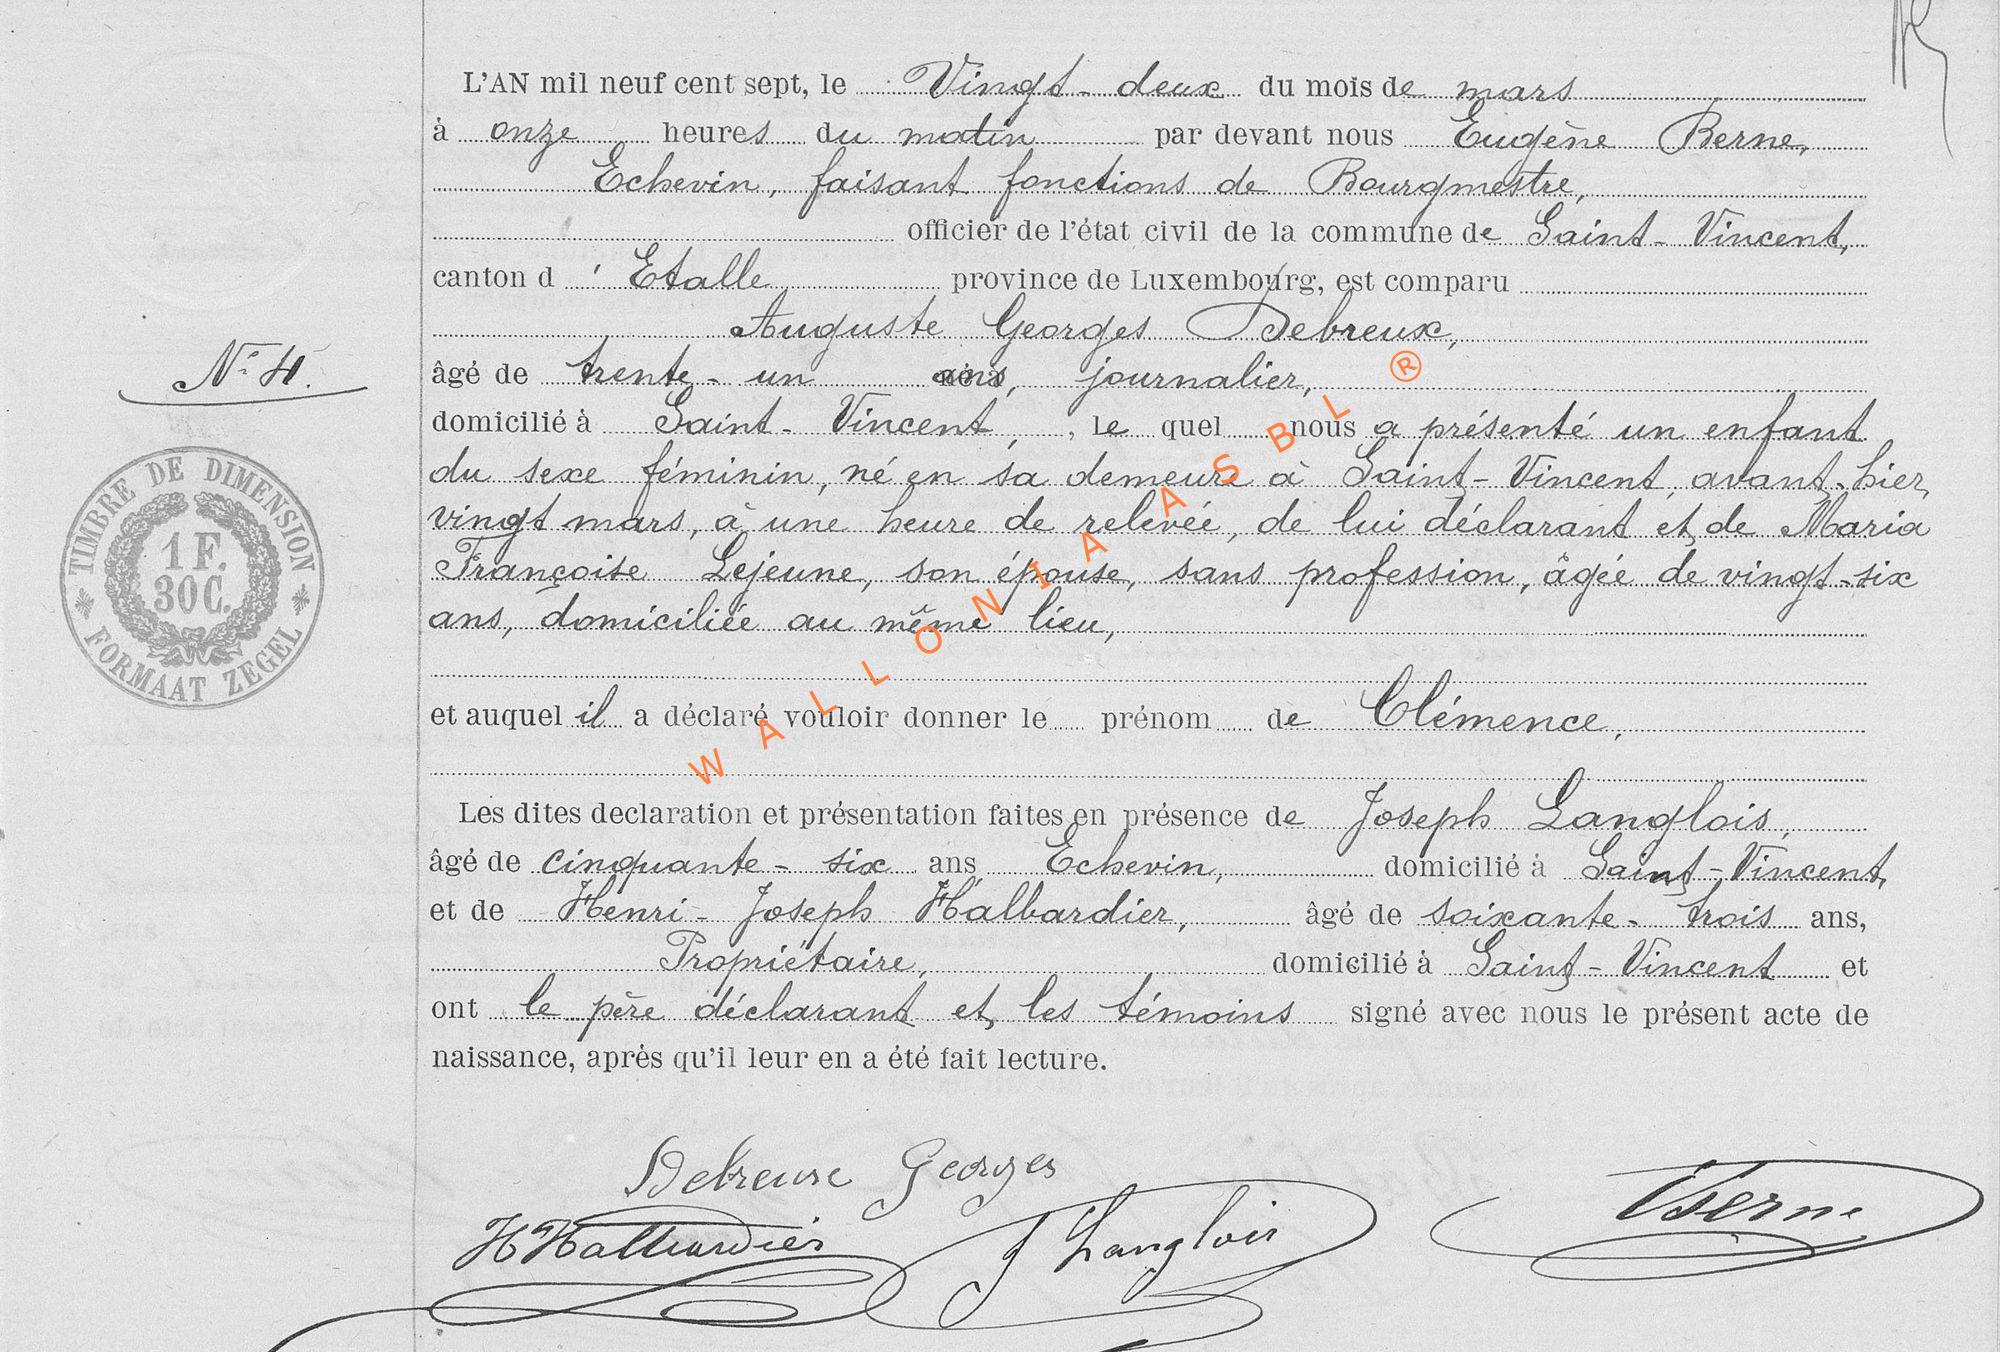 L'AN mil neuf cent sept, le Vingt-deux du mois de mars
à onze heures du matin par devant nous Eugène Berne,
Echevin, faisant fonctions de Bourgmestre,
officier de l'état civil de la commune de Saint-Vincent,
canton d'Etalle province de Luxembourg, est comparu
Auguste Georges Debreux,
âgé de trente-un ans, journalier,
domicilié à Saint-Vincent, , le quel nous a présenté un enfant
du sexe féminin, né en sa demeure à Saint-Vincent, avant-hier,
vingt mars, à une heure de relevée, de lui déclarant et de Maria
Françoise Lejeune, son épouse, sans profession, âgée de vingt-six
ans, domiciliée au même lieu,
et auquel il a déclaré vouloir donner le prénom de Clémence,
Les dites declaration et présentation faites en présence de Joseph Langlois,
âgé de cinquante-six ans Echevin, domicilié à Saint-Vincent,
et de Henri-Joseph Halbardier, âgé de soixante-trois ans,
Propriétaire, domicilié à Saint-Vincent et
ont le père déclarant et les témoins signé avec nous le présent acte de
naissance, après qu'il leur en a été fait lecture.
N° 4.
TIMBRE DE DIMENSION
1 F.
30 C.
FORMAAT ZEGEL
WALLONIA ASBL ®
Debreux Georges
HHalbardier
J Langlois
Berne